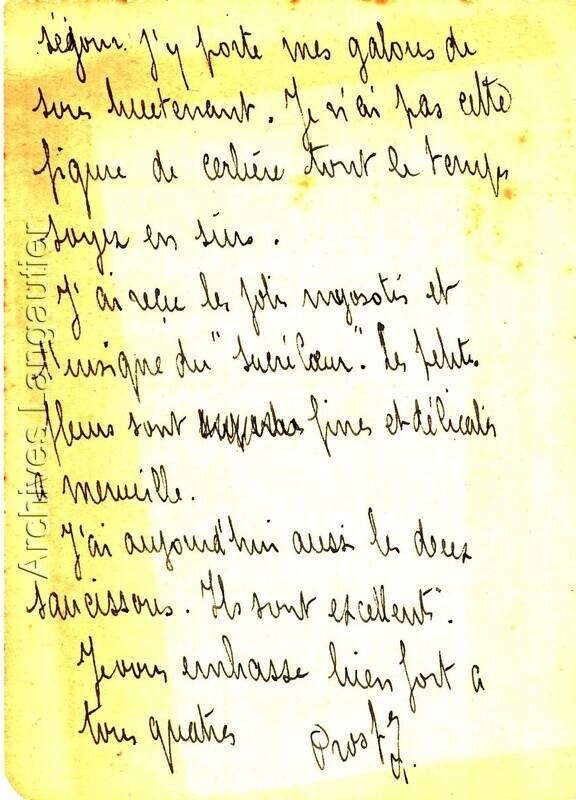 ségour. J'y porte mes galons de
sous lieutenant. Je n'ai pas cette
figure de cerbère tout le temps
soyez en sûrs.
J'ai reçu les jolis myosotis et
l'insigne du "Sacré Cœur". Les petites
fleurs sont fines et délicates
à merveille.
J'ai aujourd'hui aussi les deux
saucissons. Ils sont excellents.
Je vous embrasse bien fort à
tous quatres
Archives Langautier